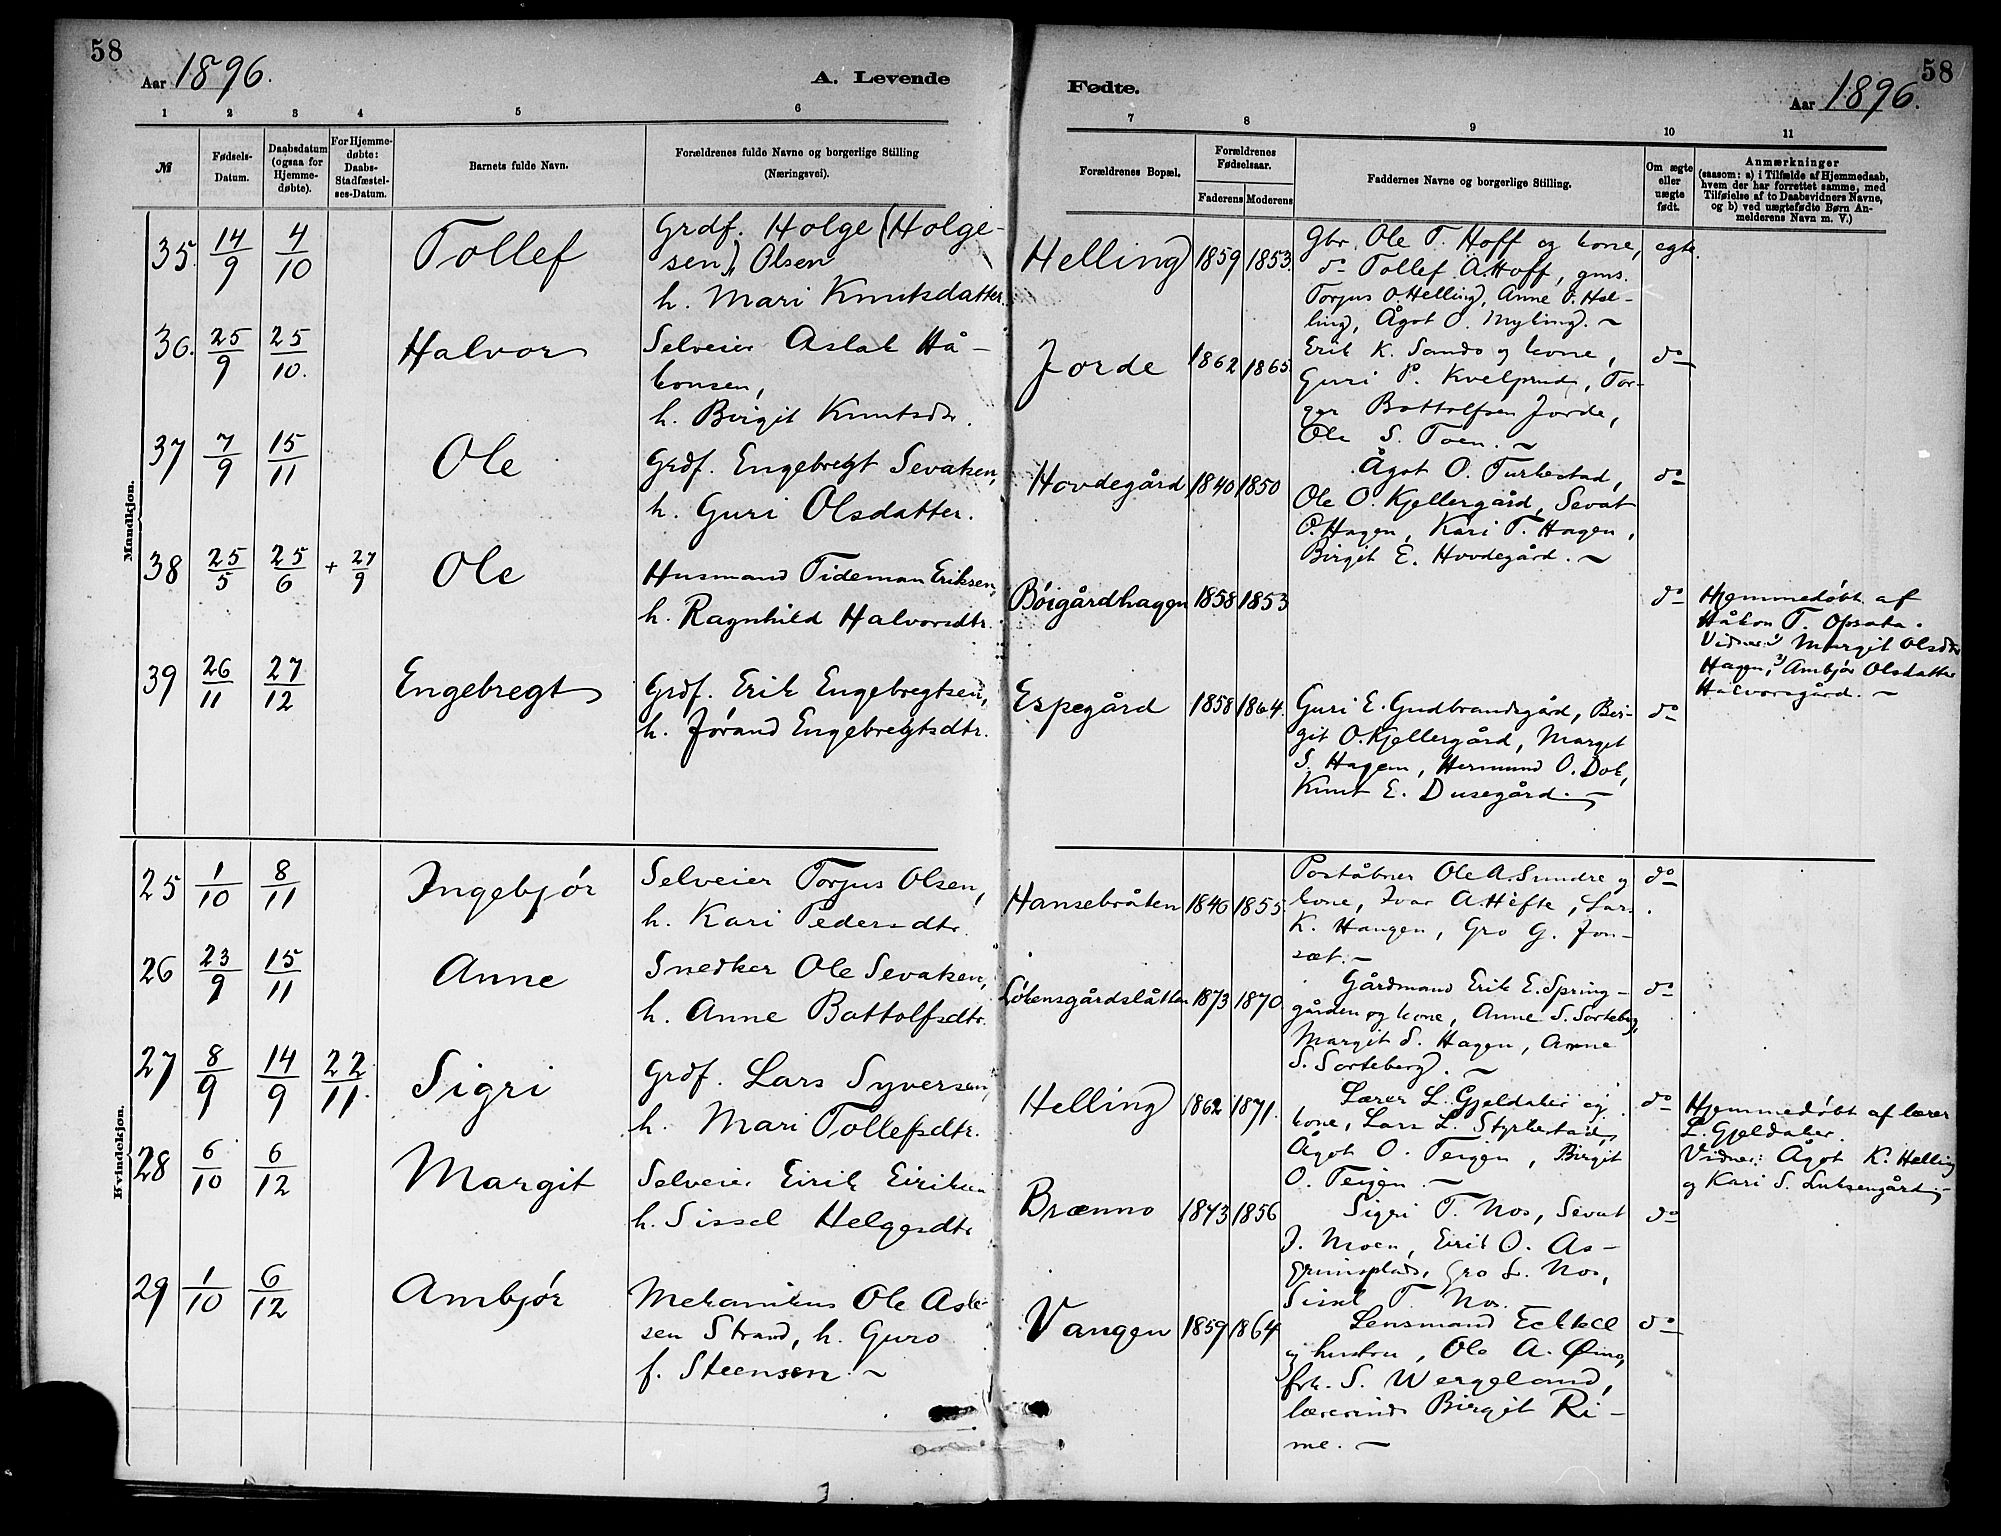 58
Aar 1896.
A. Levende
1 2 3 4 5 6
№
Fødsels-Datum.
Daabsdatum (ogsaa for Hjemmedøbte).
For Hjemmedøbte: Daabs-Stadfæstelses-Datum.
Barnets fulde Navn.
Forældrenes fulde Navne og borgerlige Stilling
(Næringsvei).
Mandkjøn.
35. 14/9 4/10 Tollef
Grdf. Holge (Holge-
sen), Olsen
h. Mari Knutsdatter.
36. 25/9 25/10. Halvor
Selveier Aslak Hå-
konsen,
h. Birgit Knutsdtr.
37 7/9 15/11 Ole
Grdf. Engebregt Sevatsen,
h. Guri Olsdatter.
38 25/5 25/6 + 27/9 Ole
Husmand Tideman Eriksen,
h. Ragnhild Halvorsdtr.
39 26/11 27/12 Engebregt
Grdf. Erik Engebregtsen,
h. Jørand Engebregtsdtr.
Kvindekjøn.
25 1/10 8/11 Ingebjør
Selveier Torjus Olsen,
h. Kari Pedersdtr.
26 23/9 15/11 Anne
Snedker Ole Sevatsen,
h. Anne Bottolfsdtr.
27 8/9 14/9 22/11. Sigri
Grdf. Lars Syversen,
h. Mari Tollefsdtr.
28 6/10 6/12 Margit
Selveier Eirik Eiriksen
h. Sissel Helgesdtr
29 1/10 6/12 Ambjør
Mekanikus Ole Asle-
sen Strand, h. Guro
f. Steensen. ~
Fødte.
Aar 1896.
58
7 8 9 10 11
Forældrenes Bopæl.
Forældrenes Fødselsaar.
Faderens Moderens
Faddernes Navne og borgerlige Stilling.
Om ægte eller uægte født.
Anmærkninger
(saasom: a) i Tilfælde af Hjemmedaab,
hvem der har forrettet samme, med
Tilføielse af to Daabsvidners Navne,
og b) ved uægtefødte Børn An-
melderens Navn m. V.)
Helling 1859 1853.
Gbr. Ole T. Hoff og kone, egte.
do Tollef A. Hoff, gms.
Torjus O. Helling, Anne T. Hel-
ling, Ågot O. Myking. ~
Jorde 1862 1865.
Erik K. Sando og kone, do
Guri P. Kvelprud, Tor-
ger Bottolfsen Jorde,
Ole S. Toen. ~
Hovdegård 1840 1850
Ågot O. Turkestad, do
Ole O. Kjellergård, Sevat
O. Hagen, Kari T. Hagen,
Birgit E. Hovdegård. ~
Bøigårdhagen 1858 1853 do
Hjemmedøbt af
Håkon T. Opsata.
Vidner: 1) Margit Olsdtr
Hagen, 2) Ambjør Olsdatter
Halvorsgård. ~
Espegård 1858 1864.
Guri E. Gudbrandsgård, Bir- do
git O. Kjellergård, Margit
S. Hagen, Hermund O. Dok,
Knut E. Dusegård. ~
Hansebråten 1846 1855.
Poståbner Ole A. Sundre og do
kone, Ivar A. Hefte, Lars
K. Haugen, Gro G. Jon-
sæt. ~
Løkensgårdslåtten 1873 1870.
Gårdmand Erik E. Spring- do
gården og kone, Anne S. Sorteberg,
Margit S. Hagen, Anne
S. Sorteberg. ~
Helling 1862 1871.
Lærer L. Gjeldaker og do
kone, Lars L. Styrkestad,
Ågot O. Teigen, Birgit
O. Teigen. ~
Hjemmedøbt af lærer
L. Gjeldaker.
Vidner: Ågot K. Helling
og Kari S. Luksengård. ~
Brænno 1843 1856
Sigri T. Nos, Sevat do
J. Moen, Eirik O. As-
grimsplads, Gro L. Nos,
Sissel T. Nos.
Vangen 1859 1864
Lensmand Eckhoff do
og hustru, Ole A. Øino,
frk. S. Wergeland,
lærerinde Birgit Ri-
me. ~